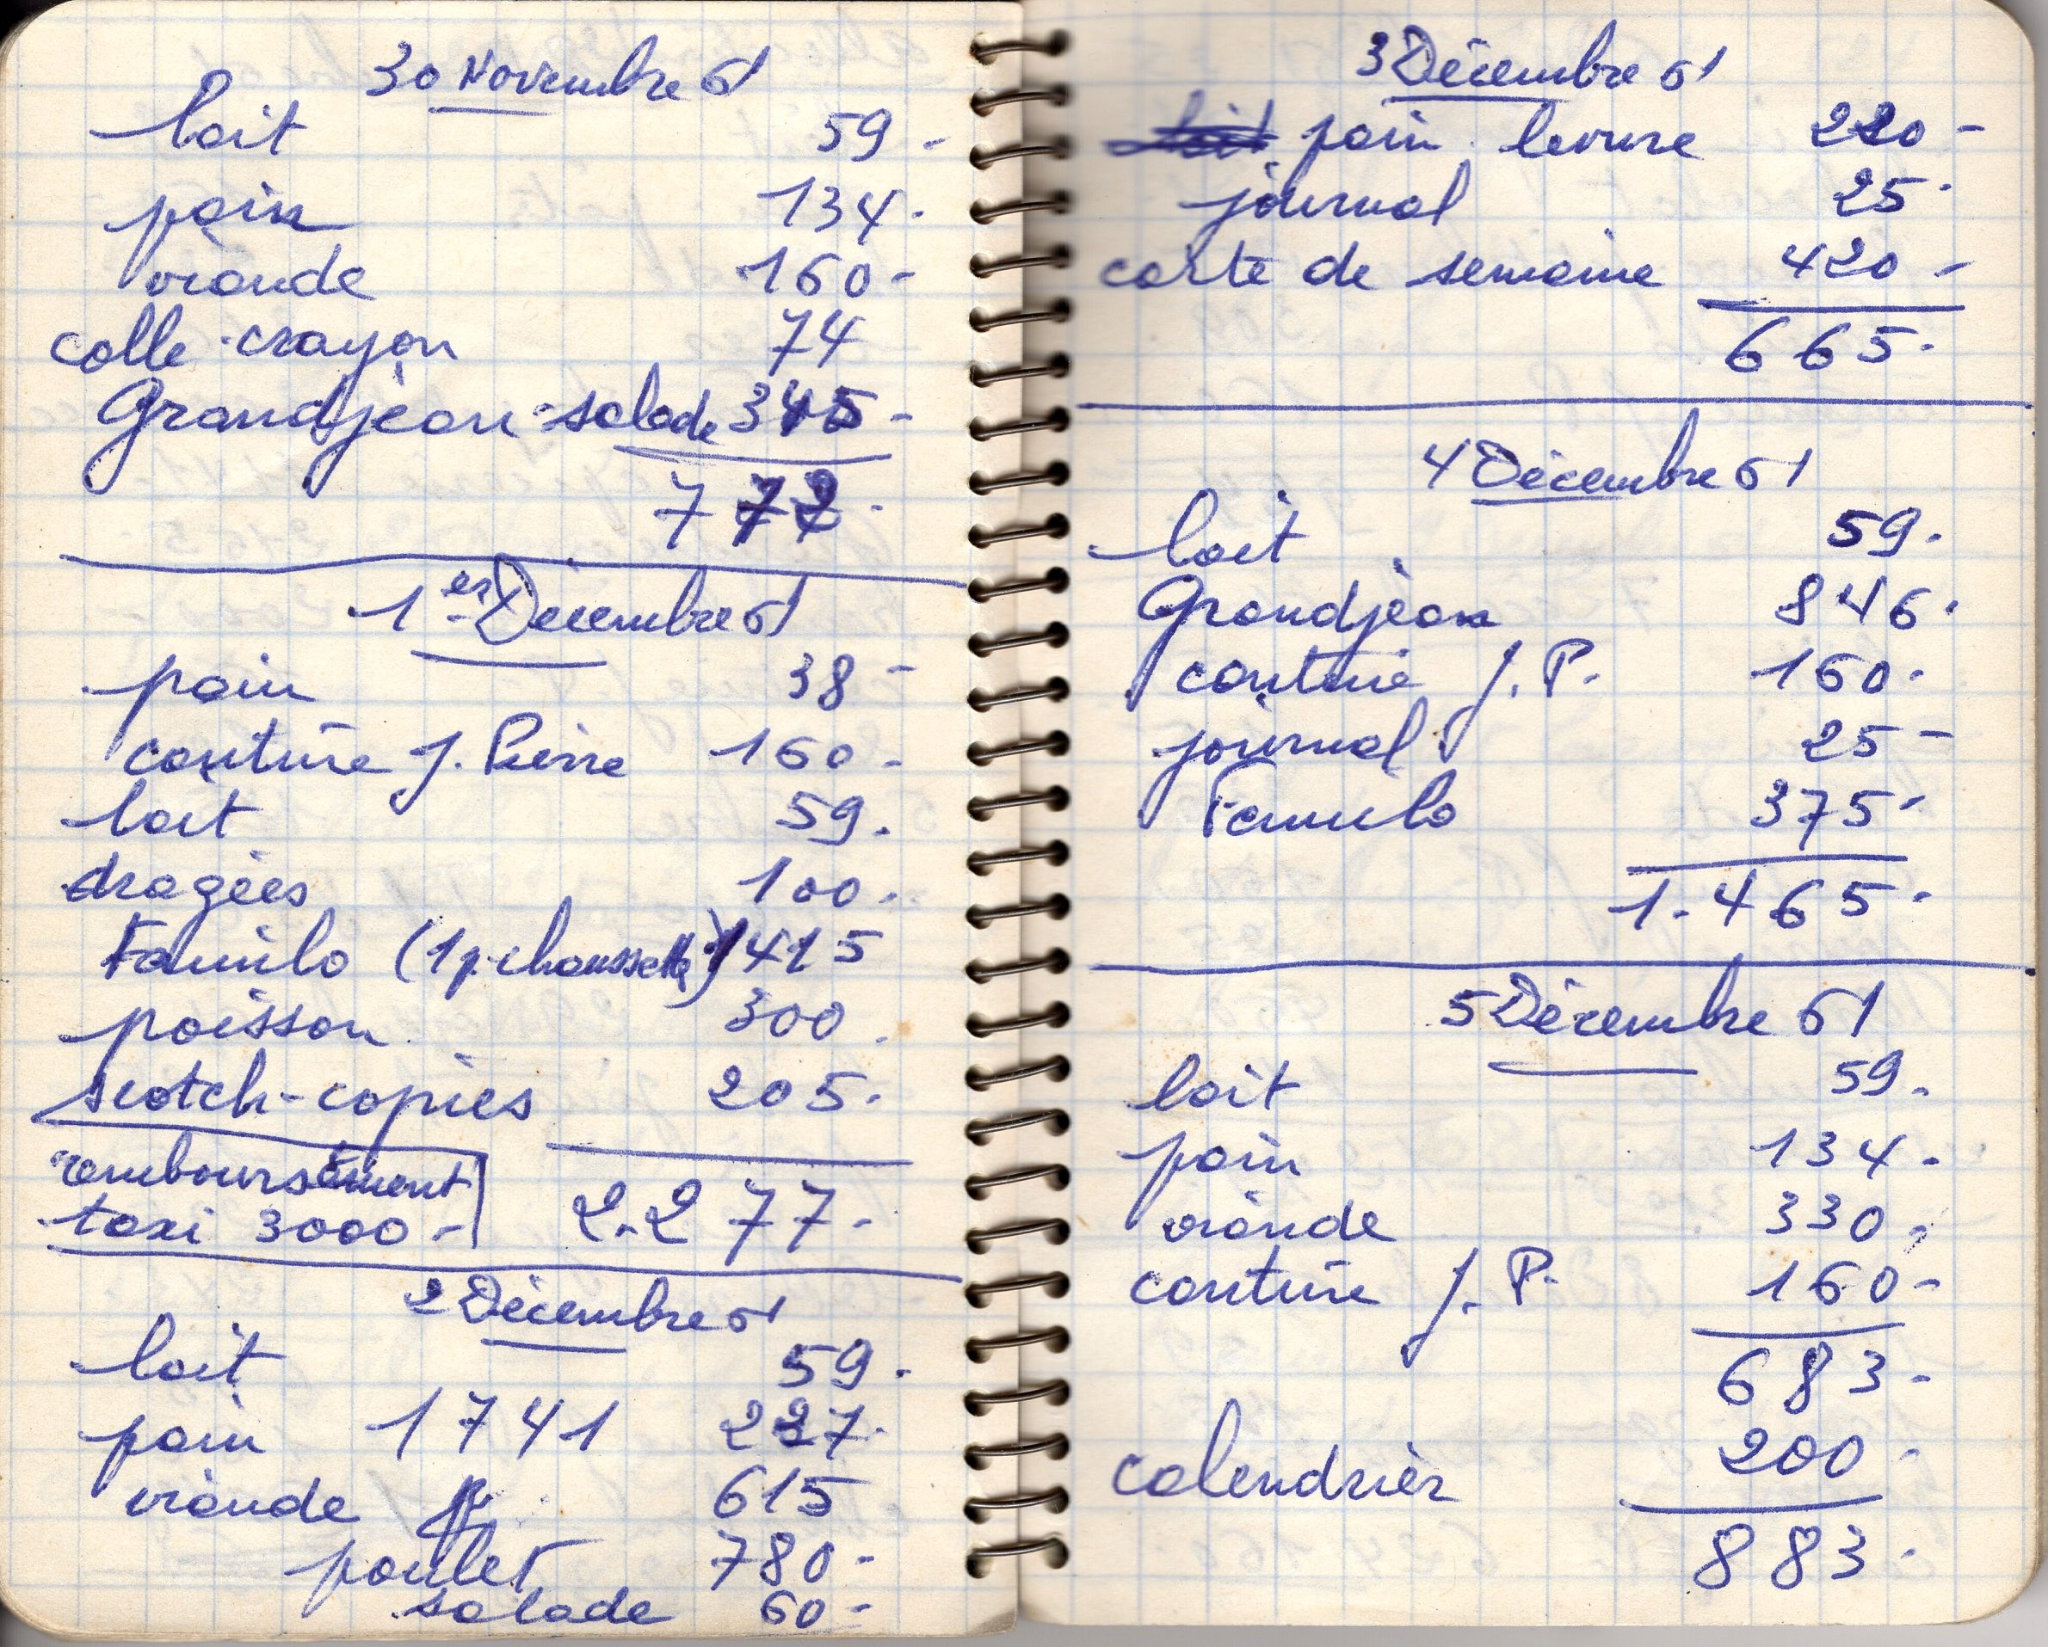 30 Novembre 61
lait 59.-
pain 134.
viande 160-
colle-crayon 74
Grandjean-salade 345-
772.
1er Décembre 61
pain 38-
couture J. Pierre 160-
lait 59.
dragées 100.-
Familo (1 p. chaussette) 1415
poisson 300.
scotch-copies 205.
remboursement
taxi 3000.- 2.277.-
2 Décembre 61
lait 59.-
pain 1741 227.
viande 615
poulet 780-
salade 60-
3 Décembre 61
pain levure 220-
journal 25.
carte de semaine 420-
665.
4 Décembre 61
lait 59.
Grandjean 846.
couture J. P. 160.
journal 25-
Famulo 375-
1.465.
5 Décembre 61
lait 59.
pain 134.
viande 330.
couture J. P. 160-
683.
calendrier 200.
883.